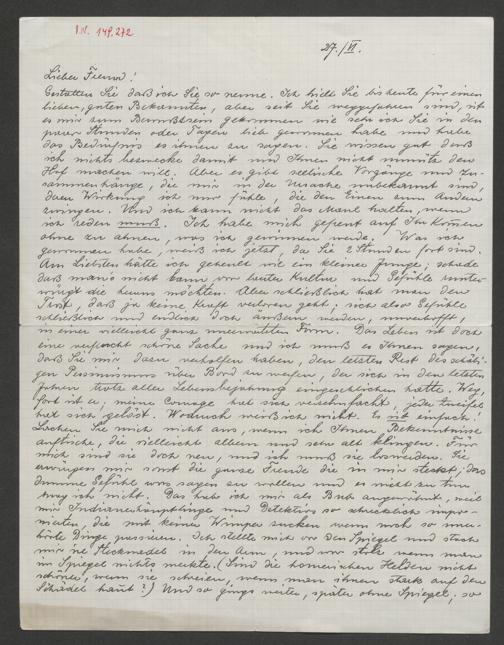 I.N. 149.272
27./VI.
Lieber Freund!
Gestatten Sie daß ich Sie so nenne. Ich hielt Sie bis heute für einen
lieben, guten Bekannten, aber seit Sie weggefahren sind, ist
es mir zum Bewußtsein gekommen wie sehr ich Sie in den
paar Stunden oder Tagen lieb gewonnen habe und habe
das Bedürfnis es ihnen zu sagen. Sie wissen gut daß
ich nichts bezwecke damit und Ihnen nicht den
Hof machen will. Aber es gibt seelische Vorgänge und Zu-
sammenhänge, die mir in der Ursache unbekannt sind,
deren Wirkung ich nur fühle, die den Einen zum Andern
zwingen. Und ich kann nicht das Maul halten, wenn
ich reden muß. Ich habe mich gefreut auf Ihr Kommen
ohne zu ahnen, was ich gewinnen werde. Was ich
gewonnen habe, weiß ich jetzt, da Sie 2 Stunden fort sind.
Am Liebsten hätte ich geheult wie ein kleiner Junge; schade
daß man's nicht kann vor lauter Kultur und Gefühle hinter-
würgt die heraus möchten. Aber schließlich hat man den
Trost, daß ja keine Kraft verloren geht, sich also Gefühle
schließlich und endlich doch äußern werden, unverhofft,
in einer vielleicht ganz unerwarteten Form. Das Leben ist doch
eine verflucht schöne Sache und ich muß es Ihnen sagen,
daß Sie mir dazu verholfen haben, den letzten Rest des schäbi-
gen Pessimismus über Bord zu werfen, der sich in den letzten
Jahren trotz aller Lebensbejahung eingeschlichen hatte. Weg,
fort ist er; meine Courage hat sich verzehnfacht, jeder Zweifel
hat sich gelöst. Wodurch weiß ich nicht. Es ist einfach.
Lachen Sie mich nicht aus, wenn ich Ihnen Bekenntnisse
auftische, die vielleicht albern und sehr alt klingen. Für
mich sind sie doch neu, und ich muß sie loswerden. Sie
erwürgen mir sonst die ganze Freude die in mir steckt, das
dumme Gefühl was sagen zu wollen und es nicht zu tun
mag ich nicht. Das hab ich mir als Bub angewöhnt, weil
mir Indianerhäuptlinge und Detektivs so schrecklich impo-
nierten, die mit keiner Wimper zucken wenn noch so uner-
hörte Dinge passieren. Ich stellte mich vor den Spiegel und stach
mir 'ne Stecknadel in den Arm, und war stolz wenn man
im Spiegel nichts merkte. (Sind die homerischen Helden nicht
schöner, wenn sie schreien, wenn man ihnen stark auf den
Schädel haut?) Und so gings weiter, später ohne Spiegel; so